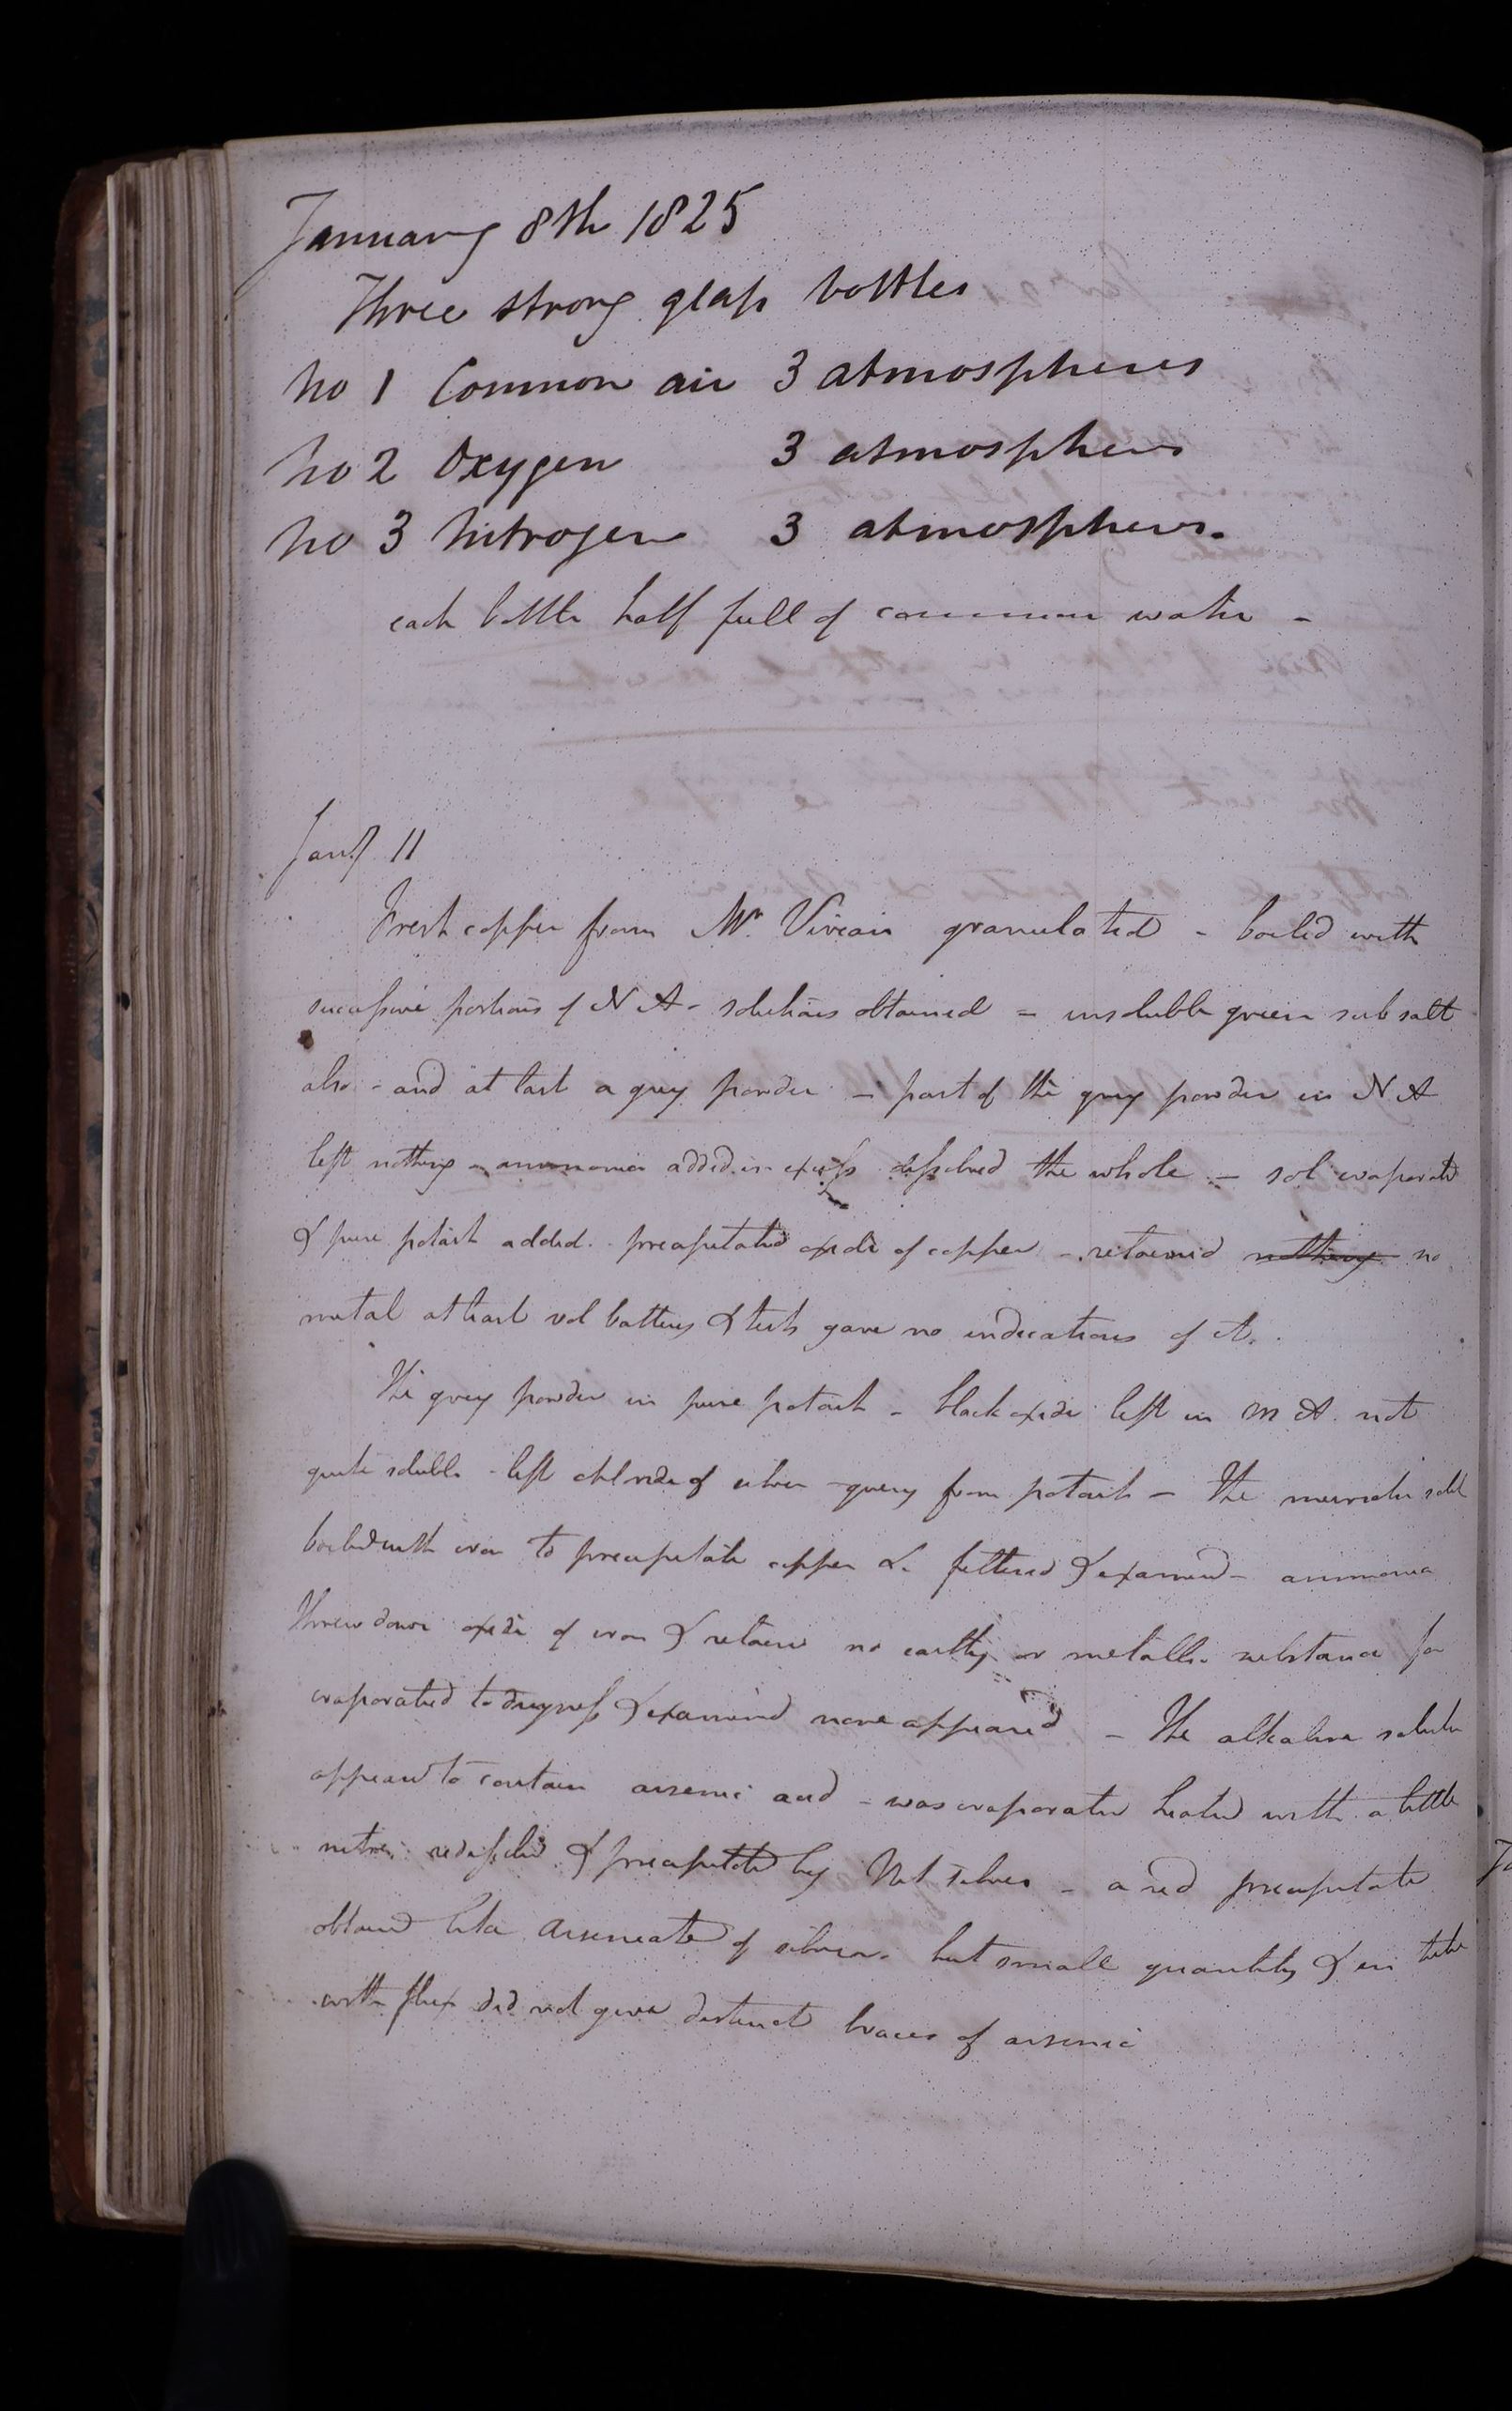 January 8th 1825
Three strong glass bottles
No 1 Common air 3 atmospheres
No 2 Oxygen 3 atmospheres
No 3 Nitrogen 3 atmospheres.
each bottle half full of common water -
Jany 11
Fresh copper from Mr. Vivian granulated - boiled with
successive portions of N A - solutions obtained - insoluble green sub salt
also - and at last a grey powder - part of the grey powder in N A
left nothing - ammonia added in excess dissolved the whole - sol evaporated
& pure potash added. precipitated oxide of copper - retained nothing no
metal at least vol battery & tests gave no indications of it.
The grey powder in pure potash - black oxide left in M A. not
quite soluble - left chloride of silver - query from potash - The muriatic sol
boiled with iron to precipitate copper &c filtered & examined - ammonia
threw down oxide of iron & retained no earthy or metallic substance for
evaporated to dryness & examined none appeared - The alkaline solution
appeared to contain arsenic acid - was evaporated heated with a little
nitre redissolved & precipitated by Nit silver - a red precipitate
obtained like arseniate of silver. but small quantity & in tube
with flux did not give distinct traces of arsenic